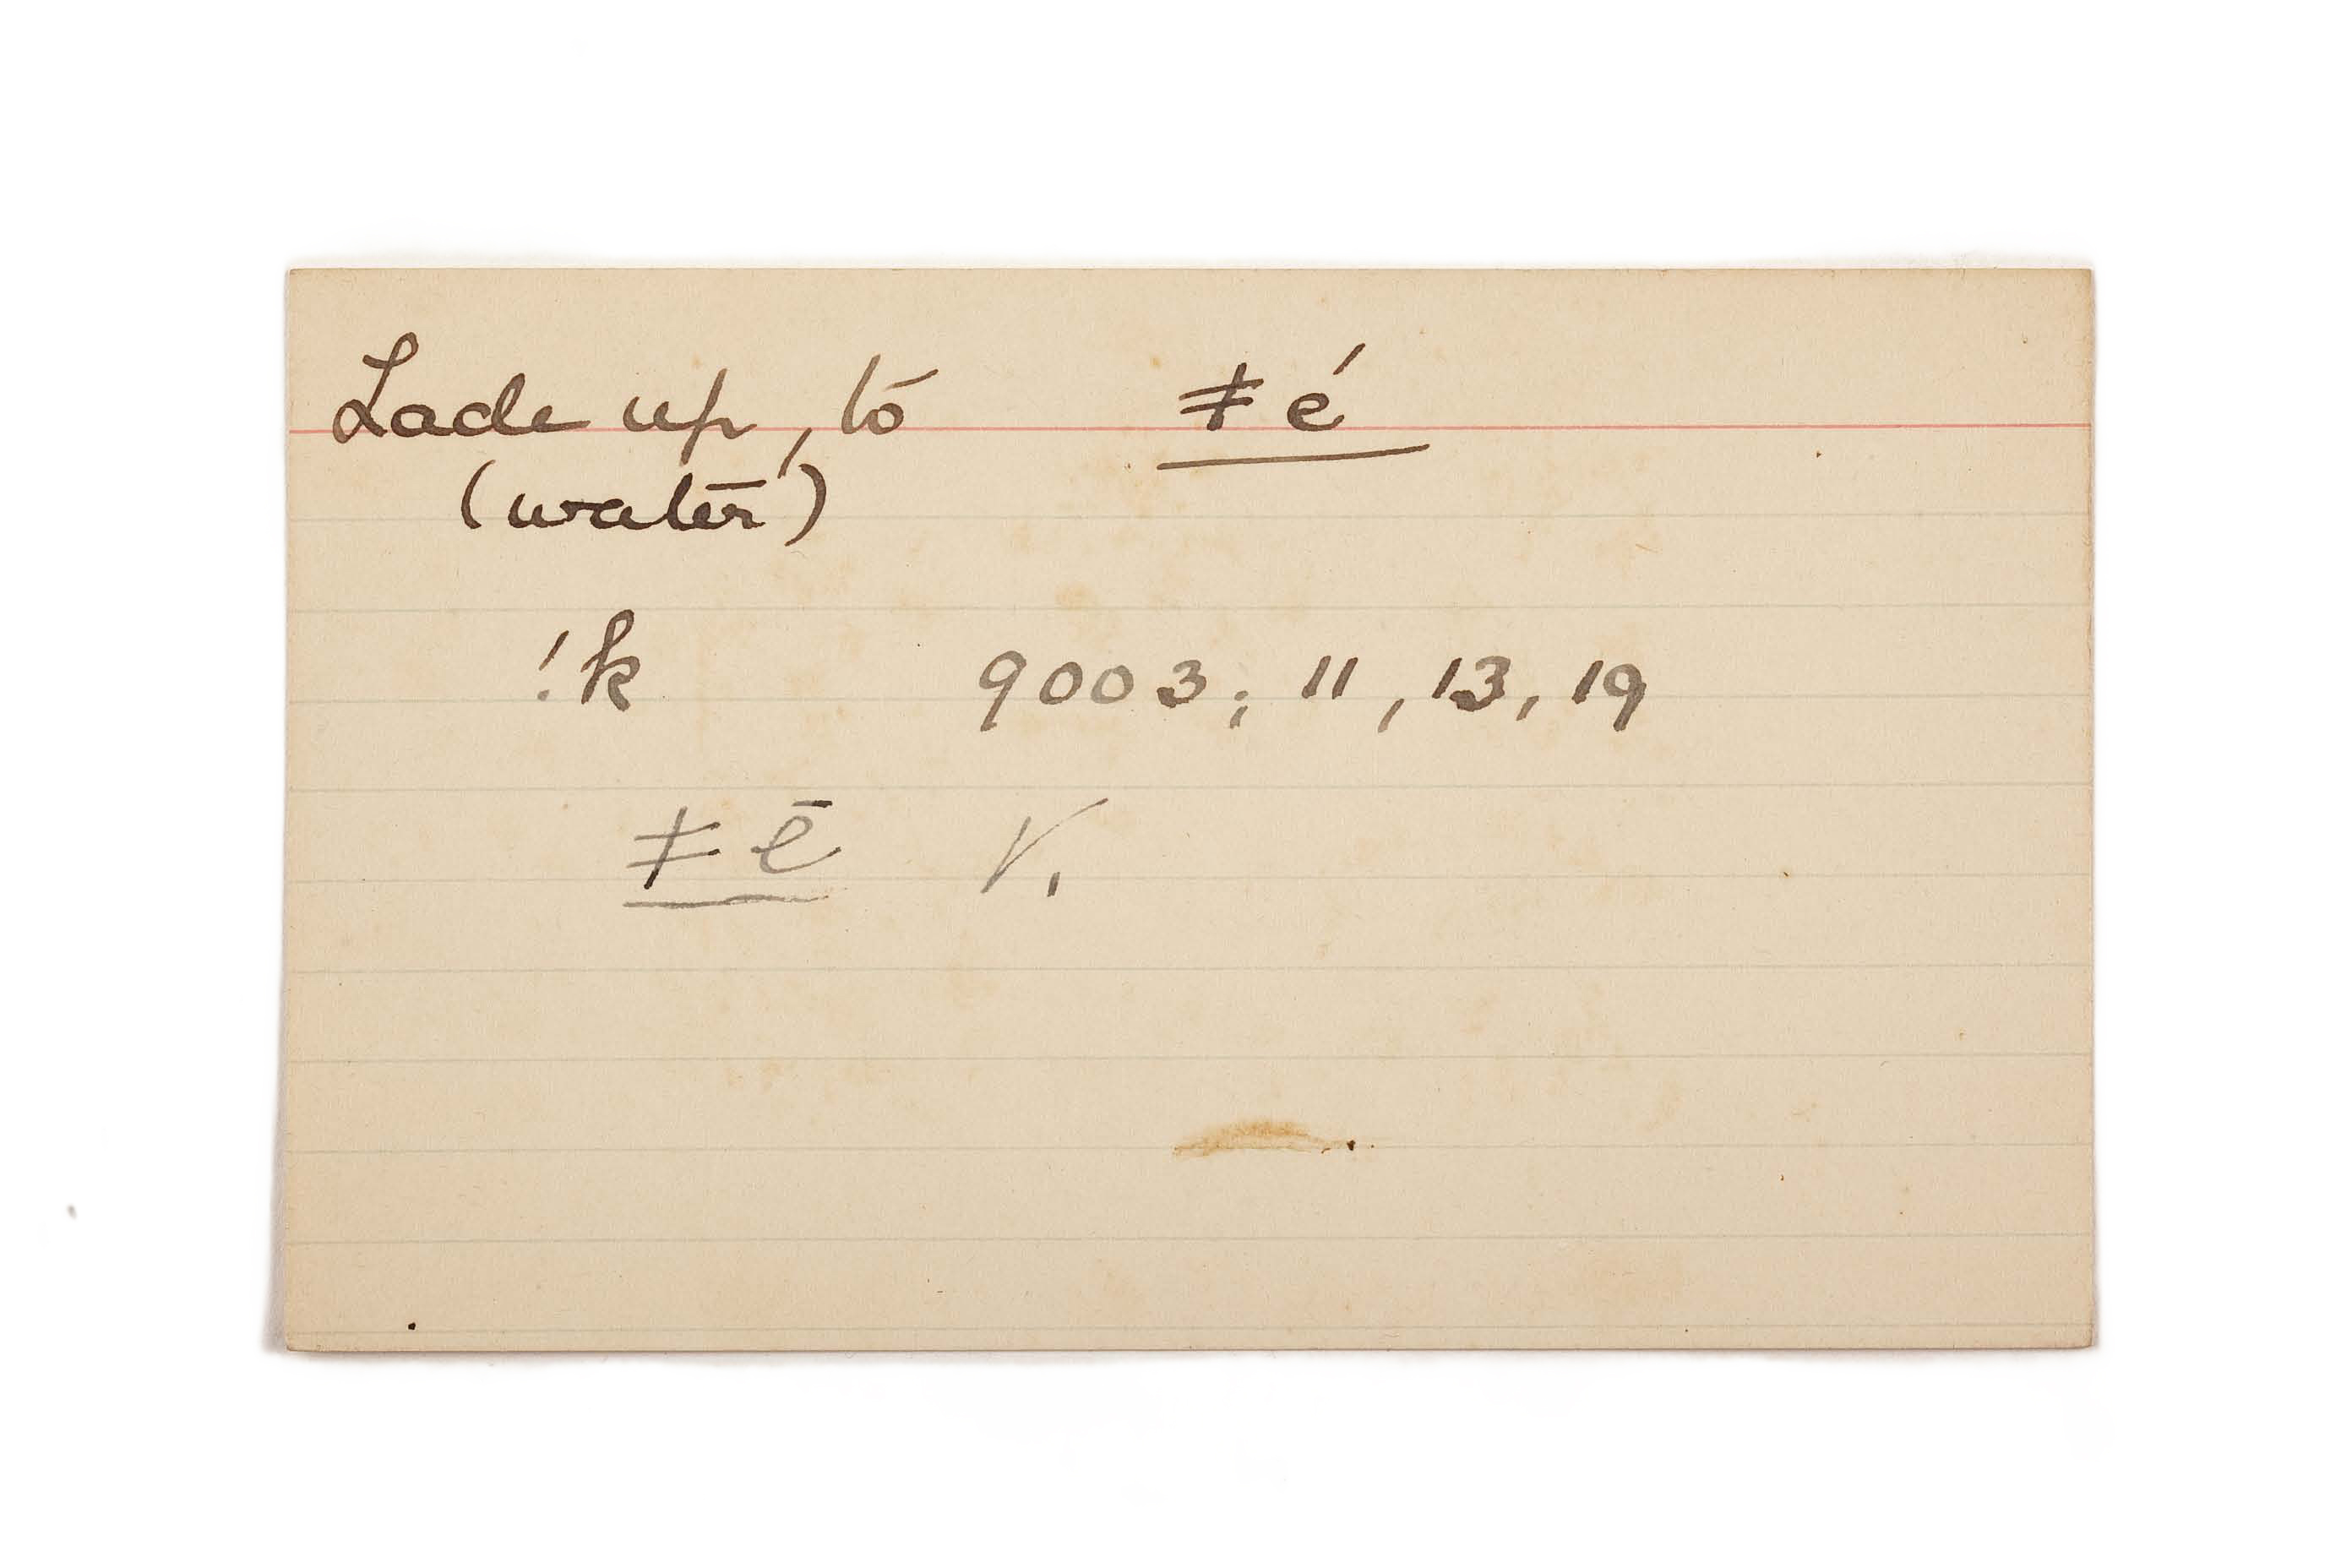 Lade up, to ǂé
(water)
!k 9003; 11, 13, 19
ǂē V.